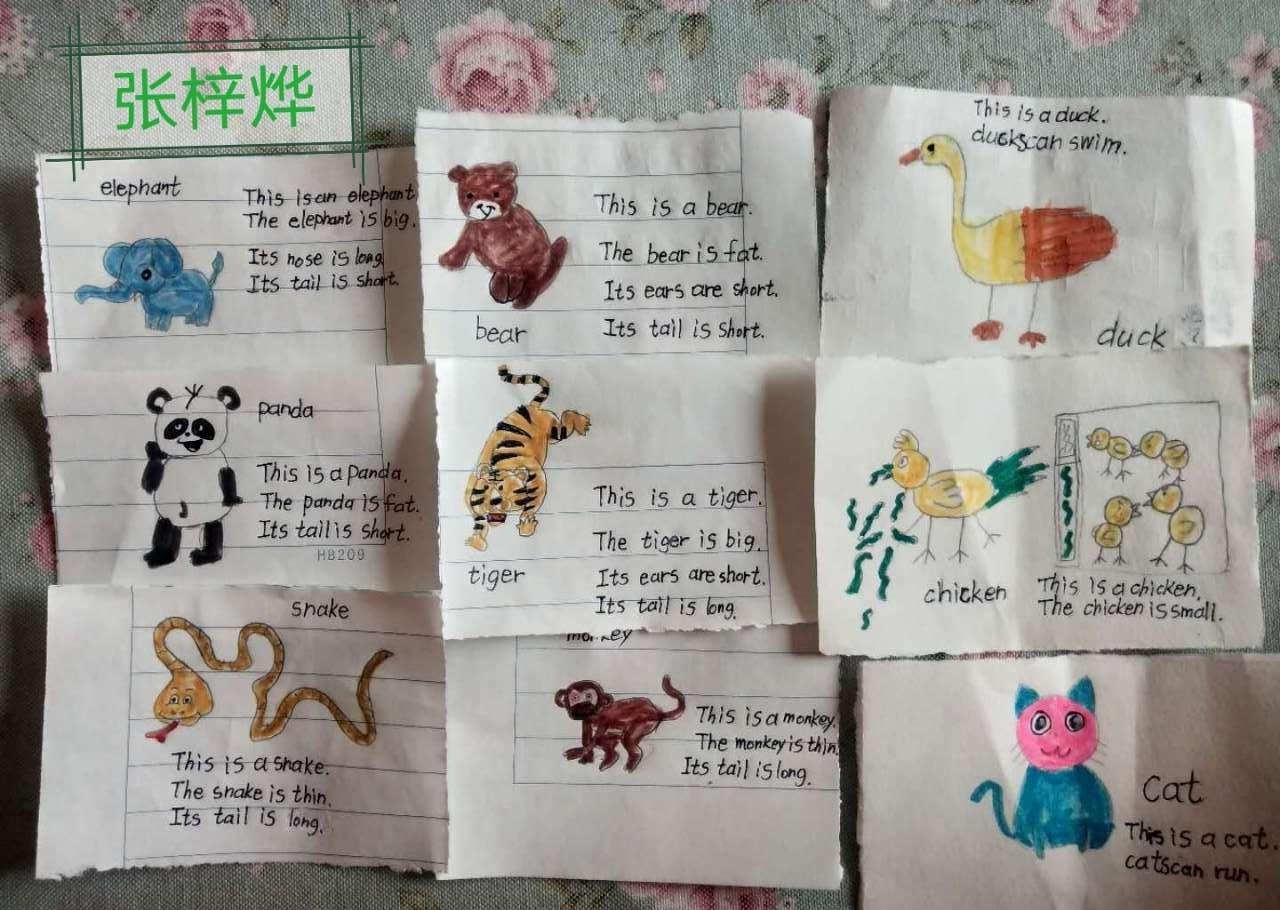 张梓烨
elephant
This is an elephant
The elephant is big.
Its nose is long
Its tail is short.
This is a bear.
The bear is fat.
Its ears are short.
Its tail is short.
bear
This is a duck.
duckscan swim.
duck
panda
This is a panda.
The panda is fat.
Its tail is short.
HB209
This is a tiger.
The tiger is big.
Its ears are short.
Its tail is long.
tiger
chicken
This is a chicken.
The chicken is small.
snake
This is a snake.
The snake is thin.
Its tail is long.
monkey
This is a monkey.
The monkey is thin
Its tail is long.
cat
This is a cat.
catscan run.